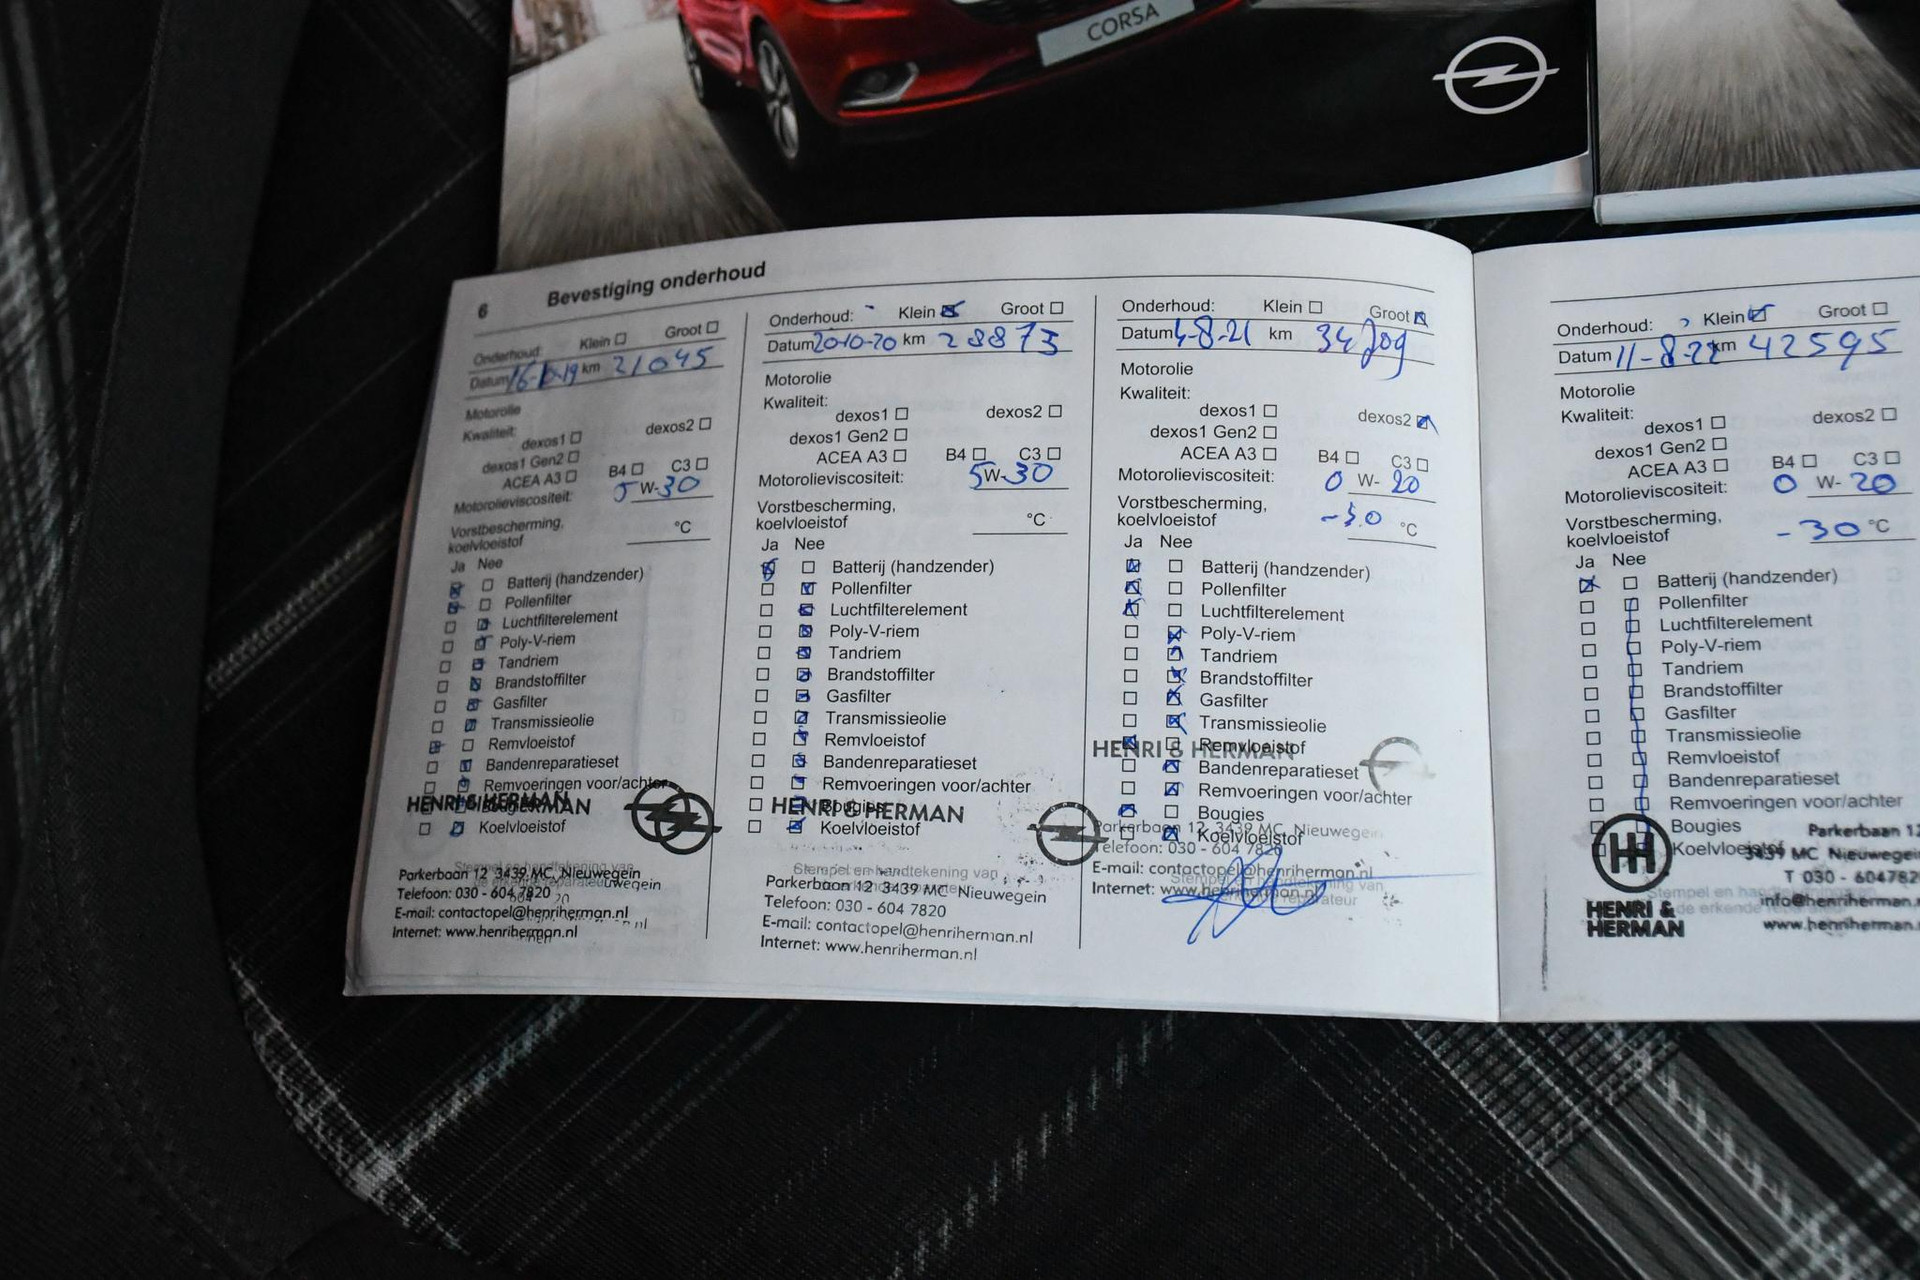 CORSA
6 Bevestiging onderhoud
Onderhoud: Klein Groot
Datum 16-10-19 km 21045
Motorolie
Kwaliteit:
dexos1 dexos2
dexos1 Gen2
ACEA A3 B4 C3
Motorolieviscositeit: 5 W-30
Vorstbescherming,
koelvloeistof °C
Ja Nee
Batterij (handzender)
Pollenfilter
Luchtfilterelement
Poly-V-riem
Tandriem
Brandstoffilter
Gasfilter
Transmissieolie
Remvloeistof
Bandenreparatieset
Remvoeringen voor/achter
HENRI & HERMAN
Koelvloeistof
Stempel en handtekening van
Parkerbaan 12 3439 MC, Nieuwegein
Telefoon: 030 - 604 7820
E-mail: contactopel@henriherman.nl
Internet: www.henriherman.nl
Onderhoud: Klein Groot
Datum 20-10-20 km 28873
Motorolie
Kwaliteit:
dexos1 dexos2
dexos1 Gen2
ACEA A3 B4 C3
Motorolieviscositeit: 5W-30
Vorstbescherming,
koelvloeistof °C
Ja Nee
Batterij (handzender)
Pollenfilter
Luchtfilterelement
Poly-V-riem
Tandriem
Brandstoffilter
Gasfilter
Transmissieolie
Remvloeistof
Bandenreparatieset
Remvoeringen voor/achter
Bougies
HENRI & HERMAN
Koelvloeistof
Stempel en handtekening van
Parkerbaan 12 3439 MC Nieuwegein
Telefoon: 030 - 604 7820
E-mail: contactopel@henriherman.nl
Internet: www.henriherman.nl
Onderhoud: Klein Groot
Datum 4-8-21 km
Motorolie
Kwaliteit:
dexos1 dexos2
dexos1 Gen2
ACEA A3 B4 C3
Motorolieviscositeit: 0 W- 20
Vorstbescherming,
koelvloeistof -30 °C
Ja Nee
Batterij (handzender)
Pollenfilter
Luchtfilterelement
Poly-V-riem
Tandriem
Brandstoffilter
Gasfilter
Transmissieolie
Remvloeistof
HENRI & HERMAN
Bandenreparatieset
Remvoeringen voor/achter
Bougies
Koelvloeistof
Parkerbaan 12, 3439 MC, Nieuwegein
Telefoon: 030 - 604 7820
E-mail: contactopel@henriherman.nl
Internet: www.henriherman.nl
Onderhoud: Klein Groot
Datum 11-8-22 km 42595
Motorolie
Kwaliteit:
dexos1 dexos2
dexos1 Gen2
ACEA A3 B4 C3
Motorolieviscositeit: 0 W- 20
Vorstbescherming,
koelvloeistof -30 °C
Ja Nee
Batterij (handzender)
Pollenfilter
Luchtfilterelement
Poly-V-riem
Tandriem
Brandstoffilter
Gasfilter
Transmissieolie
Remvloeistof
Bandenreparatieset
Remvoeringen voor/achter
Bougies
Koelvloeistof
HH
HENRI &
HERMAN
Parkerbaan 12
3439 MC Nieuwegein
T 030 - 6047820
info@henriherman.
www.henriherman.